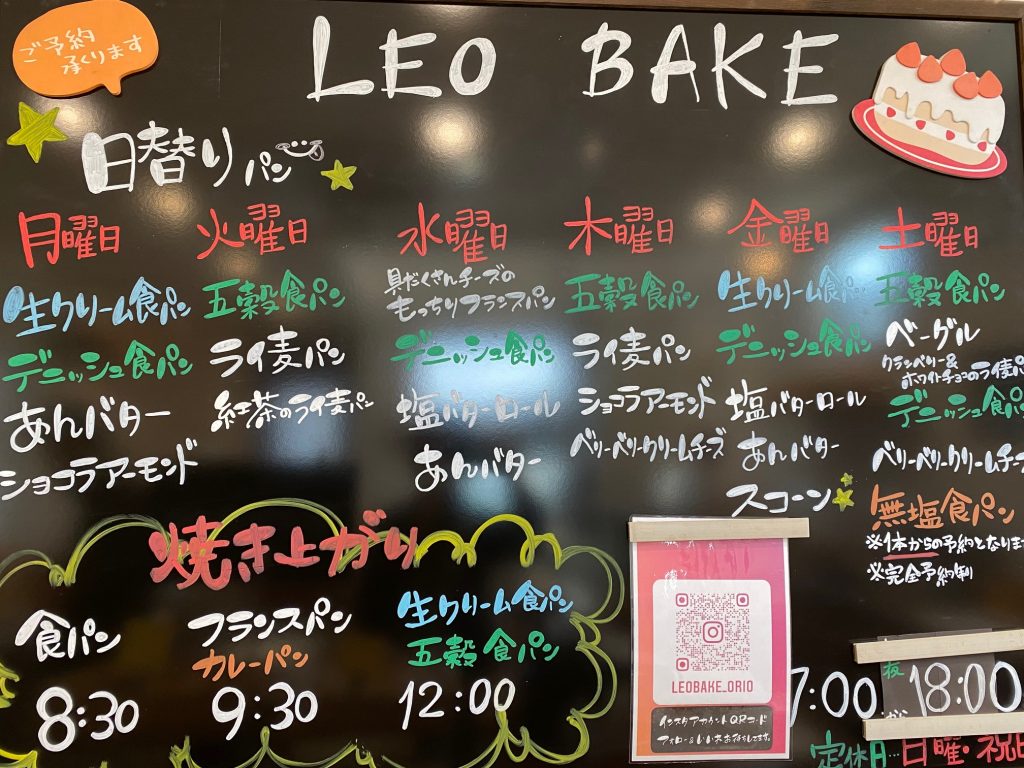 ご予約
承くります
LEO BAKE
日替りパン
月曜日
生クリーム食パン
デニッシュ食パン
あんバター
ショコラアーモンド
火曜日
五穀食パン
ライ麦パン
紅茶のライ麦パン
水曜日
具だくさんチーズの
もっちりフランスパン
デニッシュ食パン
塩バターロール
あんバター
木曜日
五穀食パン
ライ麦パン
ショコラアーモンド
ベリーベリークリームチーズ
金曜日
生クリーム食パン
デニッシュ食パン
塩バターロール
あんバター
スコーン
土曜日
五穀食パン
ベーグル
クランベリー&
ホワイトチョコのライ麦パ
デニッシュ食パ
ベリーベリークリームチー
無塩食パン
※1本からの予約となりま
※完全予約制
焼き上がり
食パン
8:30
フランスパン
カレーパン
9:30
生クリーム食パン
五穀食パン
12:00
LEOBAKE_ORIO
インスタアカウントQRコード
フォロー&いいねお待ちしてます。
7:00 18:00
定休日…日曜・祝日